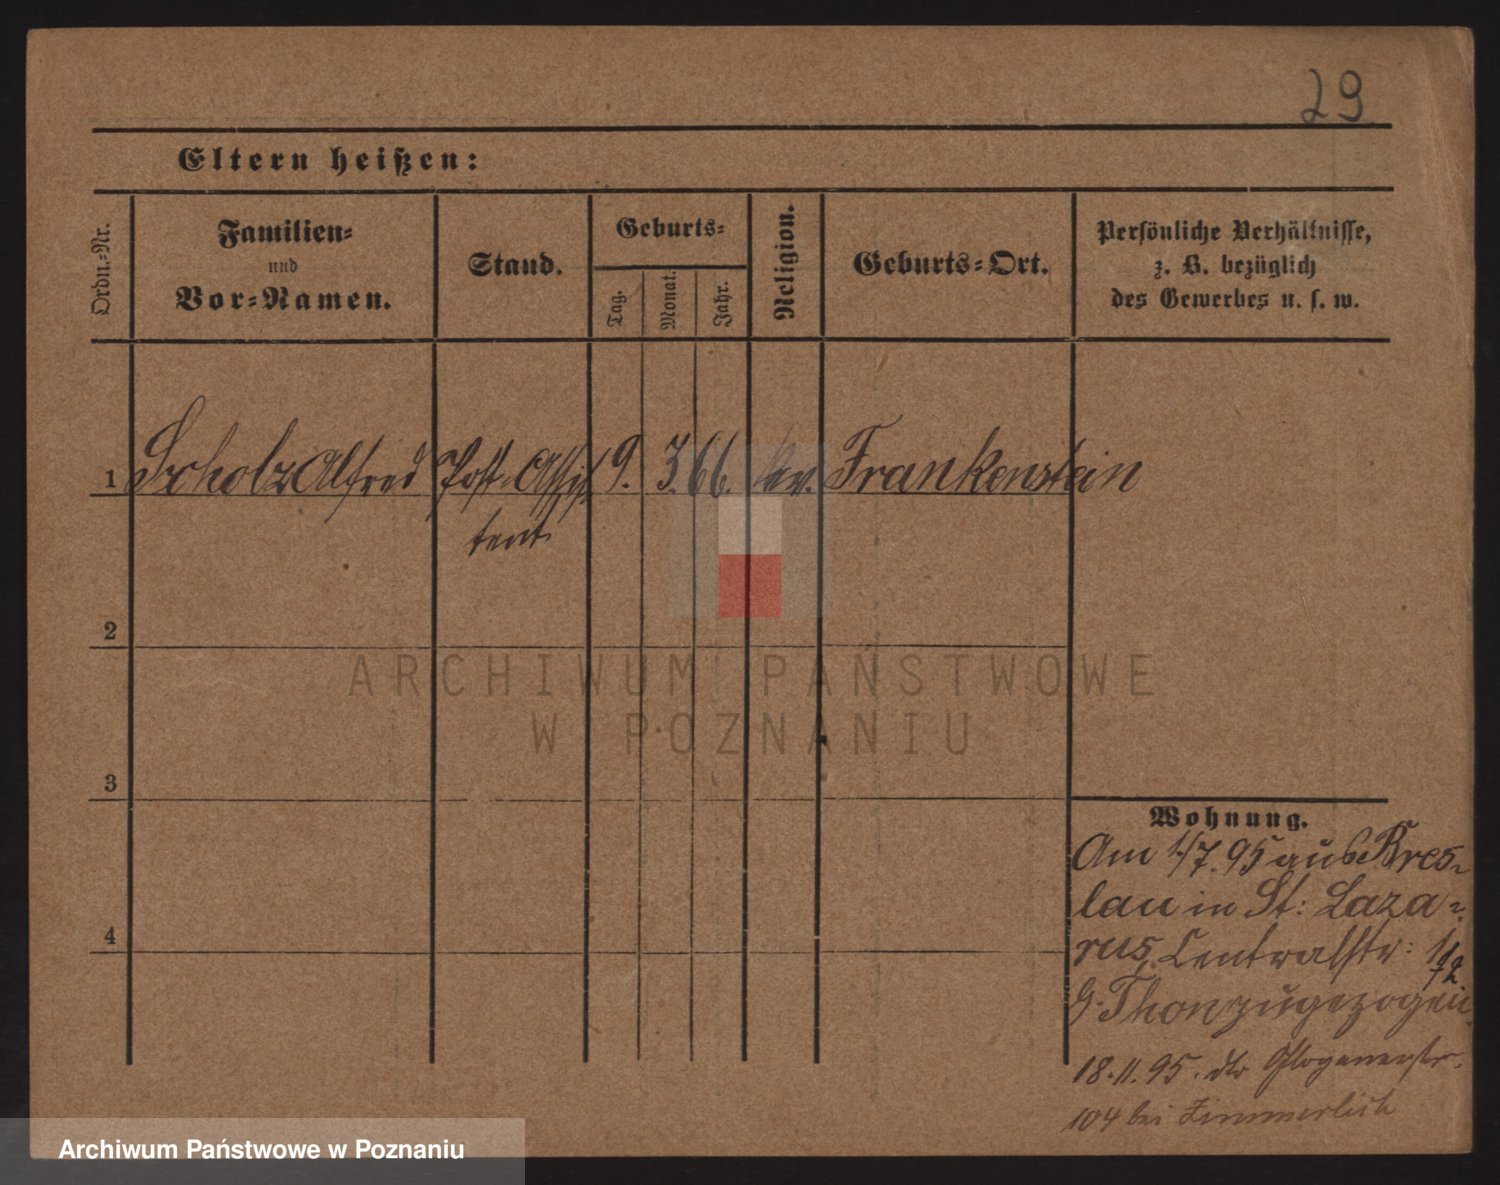 29
Eltern heißen:
Ordn.-Nr.
Familien-
und
Vor-Namen.
Stand.
Geburts-
Tag.
Monat.
Jahr.
Religion.
Geburts-Ort.
Persönliche Verhältnisse,
z. B. bezüglich
des Gewerbes u. s. w.
1 Scholz Alfred Post-Assis 9. 3. 66. ev. Frankenstein
tent
2
3
4
ARCHIWUM PAŃSTWOWE
W POZNANIU
Wohnung.
Am 1/7.95 aus Bres-
lau in St: Laza-
rus, Centralstr:
Thon zugezogen
18.11.95. dto Glogauerstr.
104 bei Zimmerlich
Archiwum Państwowe w Poznaniu